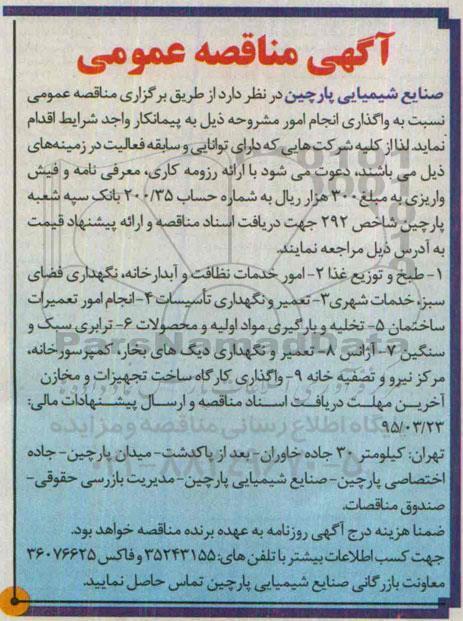 آگهی مناقصه عمومی
صنایع شیمیایی پارچین در نظر دارد از طریق برگزاری مناقصه عمومی
نسبت به واگذاری انجام امور مشروحه ذیل به پیمانکار واجد شرایط اقدام
نماید. لذا از کلیه شرکت هایی که دارای توانایی و سابقه فعالیت در زمینه های
ذیل می باشند، دعوت می شود با ارائه رزومه کاری، معرفی نامه و فیش
واریزی به مبلغ ۳۰۰ هزار ریال به شماره حساب ۲۰۰/۳۵ بانک سپه شعبه
پارچین شاخص ۲۹۲ جهت دریافت اسناد مناقصه و ارائه پیشنهاد قیمت
به آدرس ذیل مراجعه نمایند.
۱- طبخ و توزیع غذا ۲- امور خدمات نظافت و آبدارخانه، نگهداری فضای
سبز، خدمات شهری ۳- تعمیر و نگهداری تأسیسات ۴- انجام امور تعمیرات
ساختمان ۵- تخلیه و بارگیری مواد اولیه و محصولات ۶- ترابری سبک و
سنگین ۷- آژانس ۸- تعمیر و نگهداری دیگ های بخار، کمپرسورخانه،
مرکز نیرو و تصفیه خانه ۹- واگذاری کارگاه ساخت تجهیزات و مخازن
آخرین مهلت دریافت اسناد مناقصه و ارسال پیشنهادات مالی:
۹۵/۰۳/۲۳
تهران: کیلومتر ۳۰ جاده خاوران- بعد از پاکدشت- میدان پارچین- جاده
اختصاصی پارچین- صنایع شیمیایی پارچین- مدیریت بازرسی حقوقی-
صندوق مناقصات.
ضمنا هزینه درج آگهی روزنامه به عهده برنده مناقصه خواهد بود.
جهت کسب اطلاعات بیشتر با تلفن های: ۳۵۲۴۳۱۵۵ و فاکس ۳۶۰۷۶۶۲۵
معاونت بازرگانی صنایع شیمیایی پارچین تماس حاصل نمایید.
ParsNamadData
پایگاه اطلاع رسانی مناقصه و مزایده